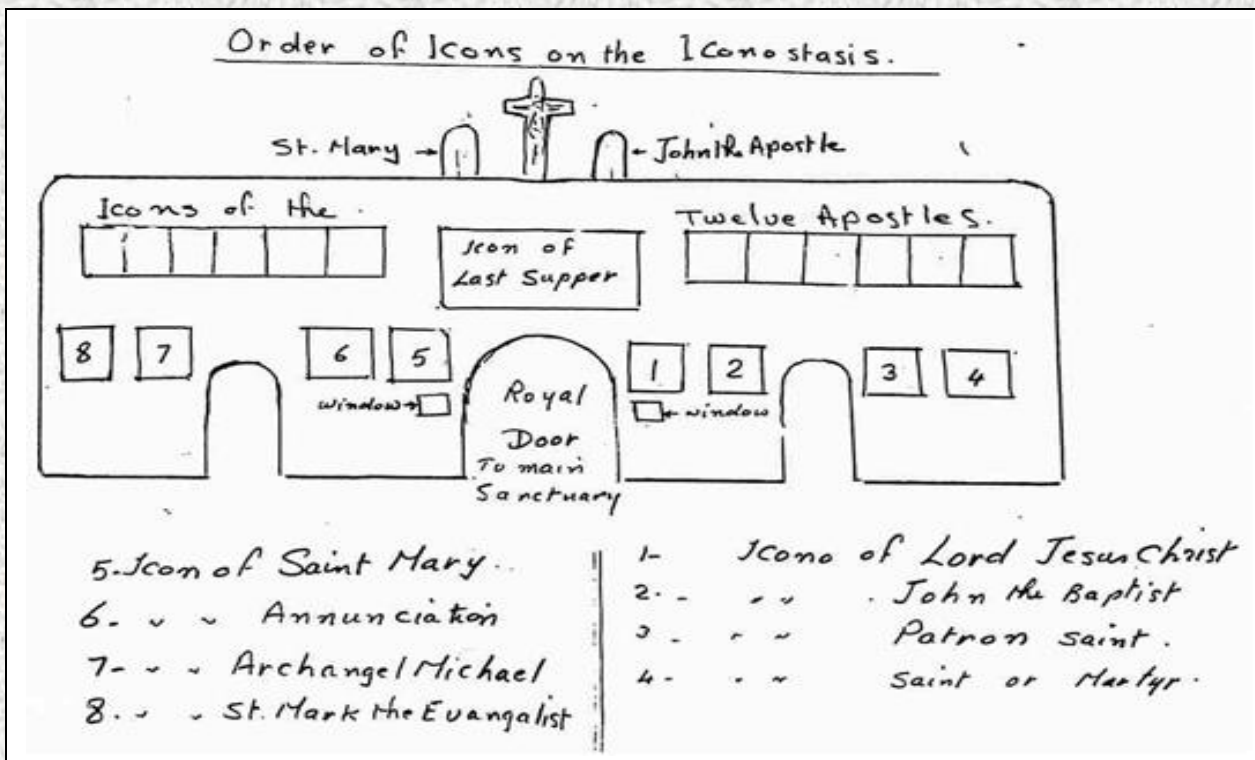 Order of Icons on the Iconostasis.
St. Mary → ← John the Apostle
Icons of the Twelve Apostles.
Icon of
Last Supper
8 7 6 5 1 2 3 4
window → ← window
Royal
Door
To main
Sanctuary
5. Icon of Saint Mary.
6- " " Annunciation
7- " " Archangel Michael
8. " " St. Mark the Evangalist
1- Icono of Lord Jesus Christ
2. - " " . John the Baptist
3 - " " Patron saint.
4 - " " Saint or Martyr.